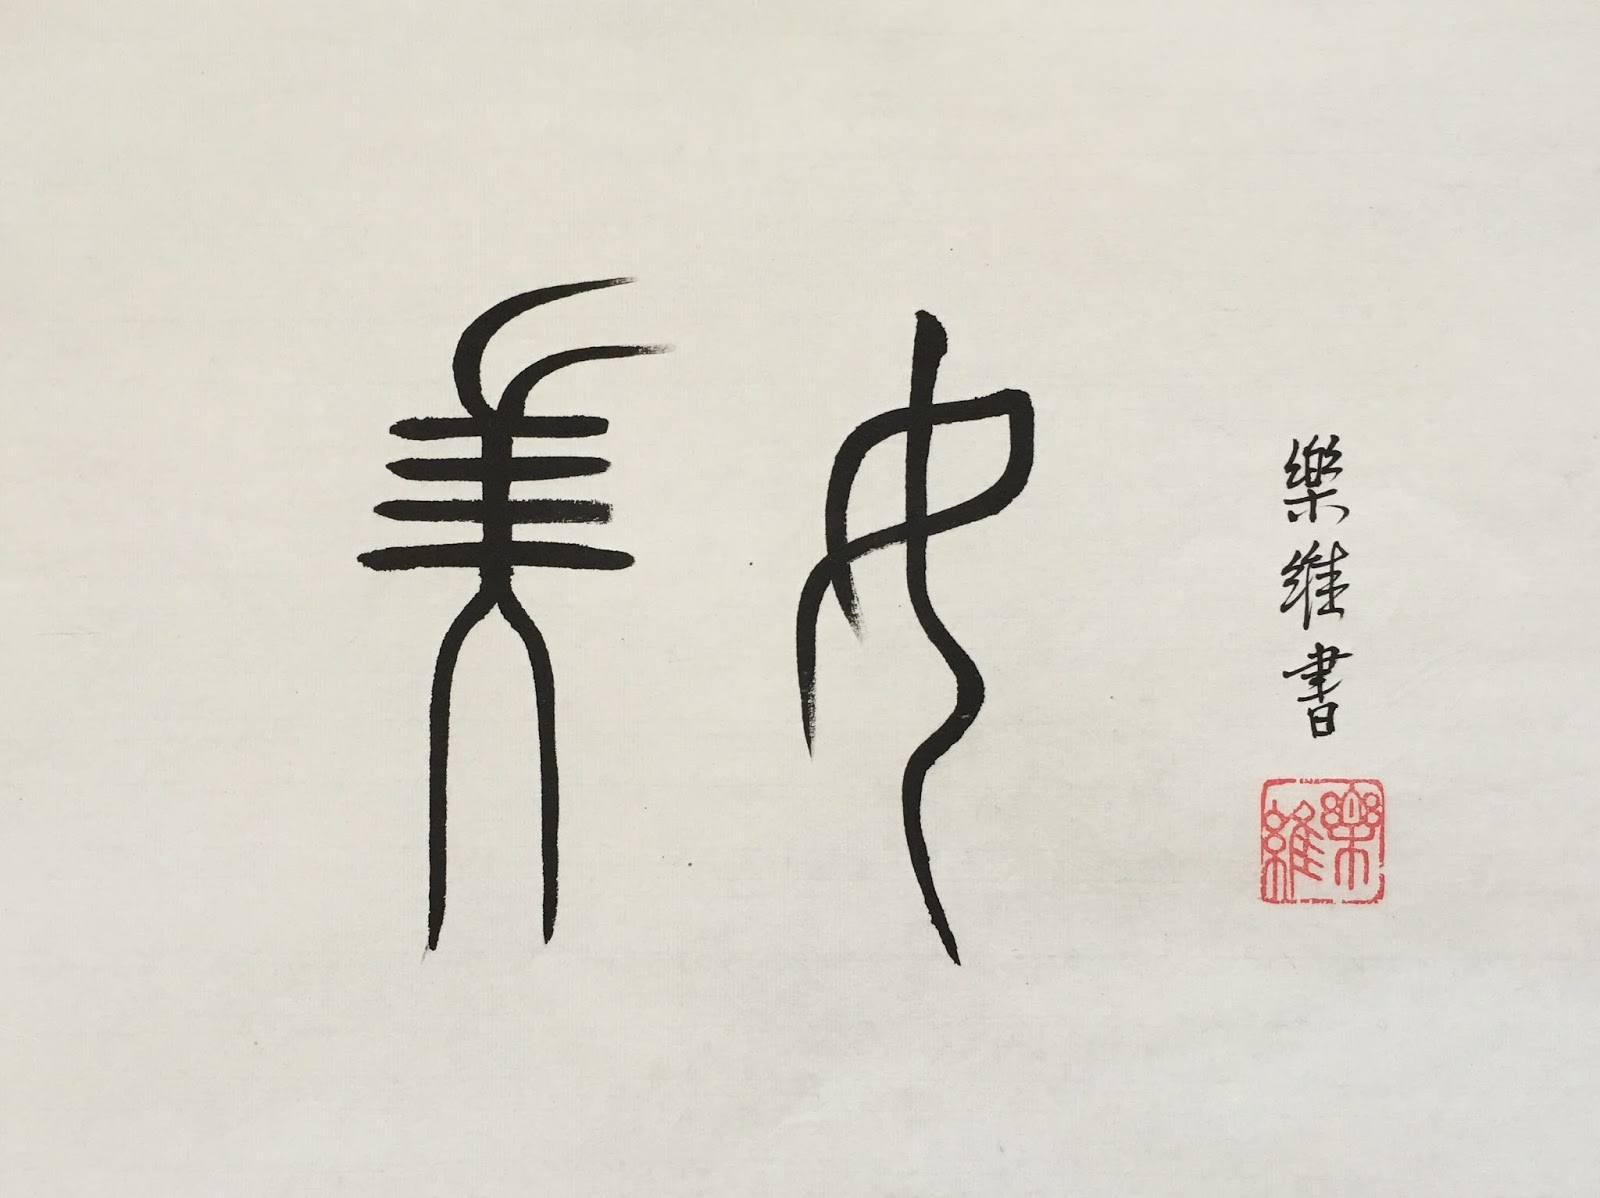 美女
樂維書
樂維